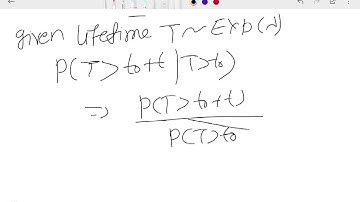 given lifetime T ~ Exp(λ)
P(T > t₀+t | T > t₀)
⇒ P(T > t₀+t)
P(T > t₀